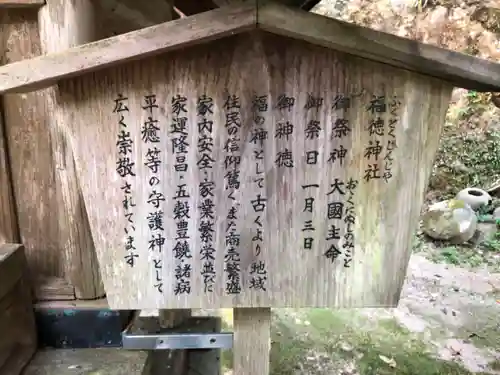 福徳神社
ふくとくじんじゃ
御祭神 大國主命
おおくにぬしのみこと
御祭日 一月三日
御神徳
福の神として古くより地域
住民の信仰篤くまた商売繁盛
家内安全・家業繁栄並びに
家運隆昌・五穀豊饒・諸病
平癒等の守護神として
広く崇敬されています